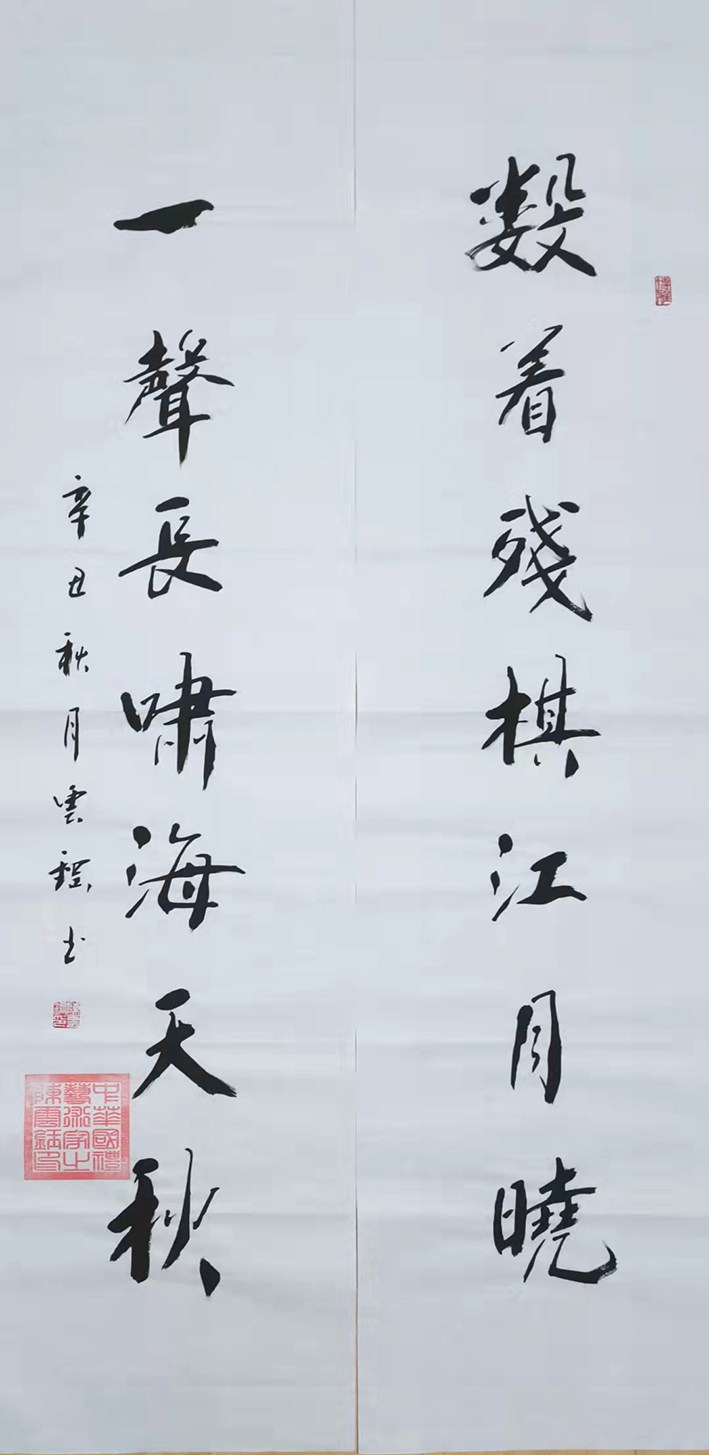 數着殘棋江月曉
一聲長嘯海天秋
辛丑秋月雲书
中華國禮
藝術家之
陳雲印